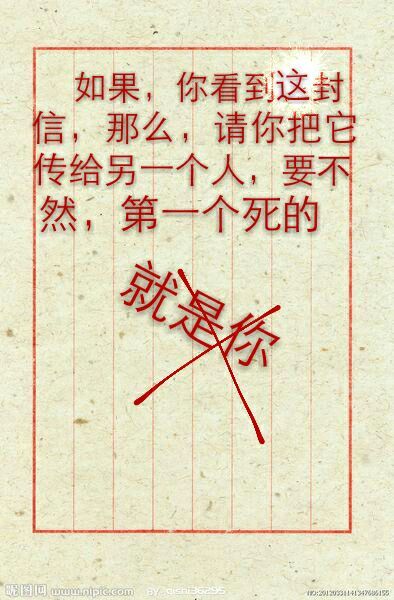 如果，你看到这封
信，那么，请你把它
传给另一个人，要不
然，第一个死的
就是你
昵图网 www.nipic.com
by: qishi36295
NO:20120331141347686155